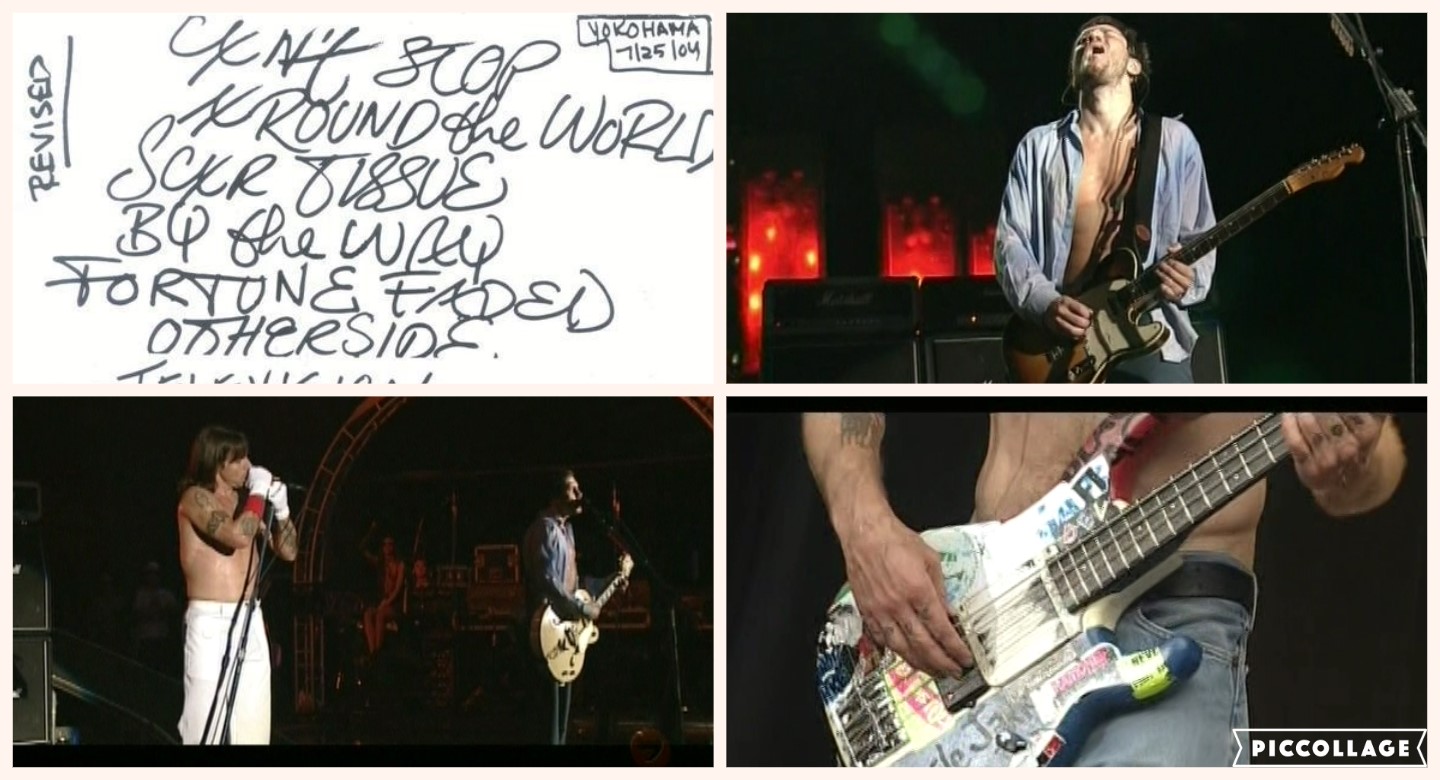 REVISED
YOKOHAMA
7/25/04
CAN'T STOP
AROUND the WORLD
SCAR TISSUE
BY the WAY
FORTUNE FADED
OTHERSIDE.
TELEVISION
Marshall
PICCOLLAGE